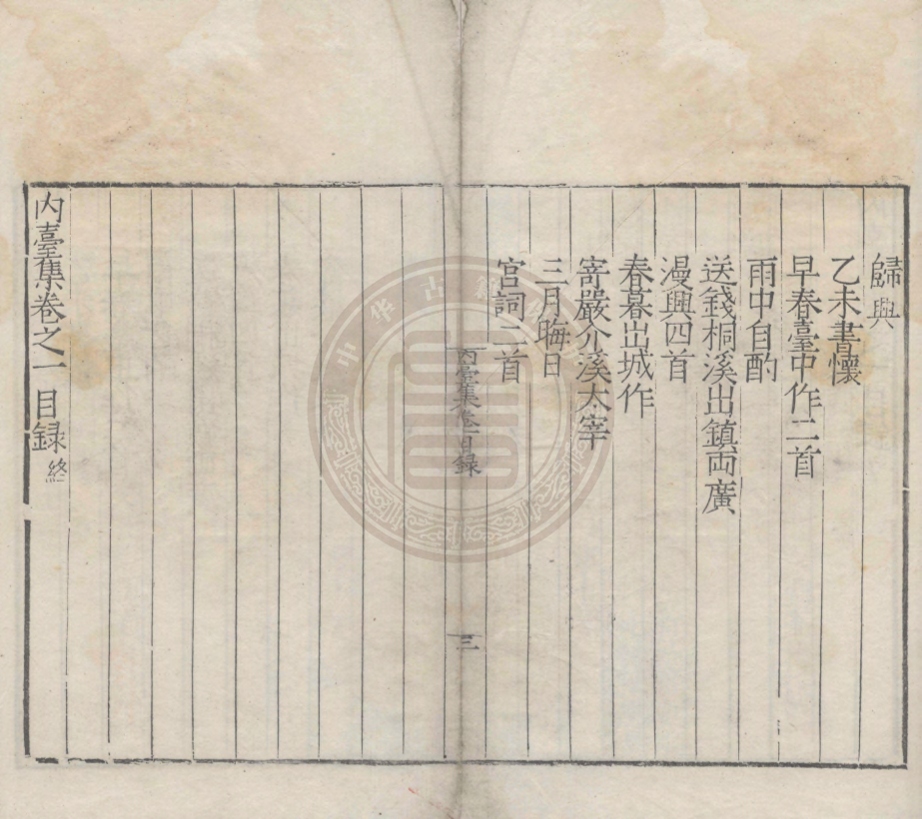 歸興
乙未書懷
早春臺中作二首
雨中自酌
送錢桐溪出鎮兩廣
漫興四首
春暮出城作
寄嚴介溪太宰
三月晦日
宮詞二首
內臺集卷一目録
三
內臺集卷之一目録終